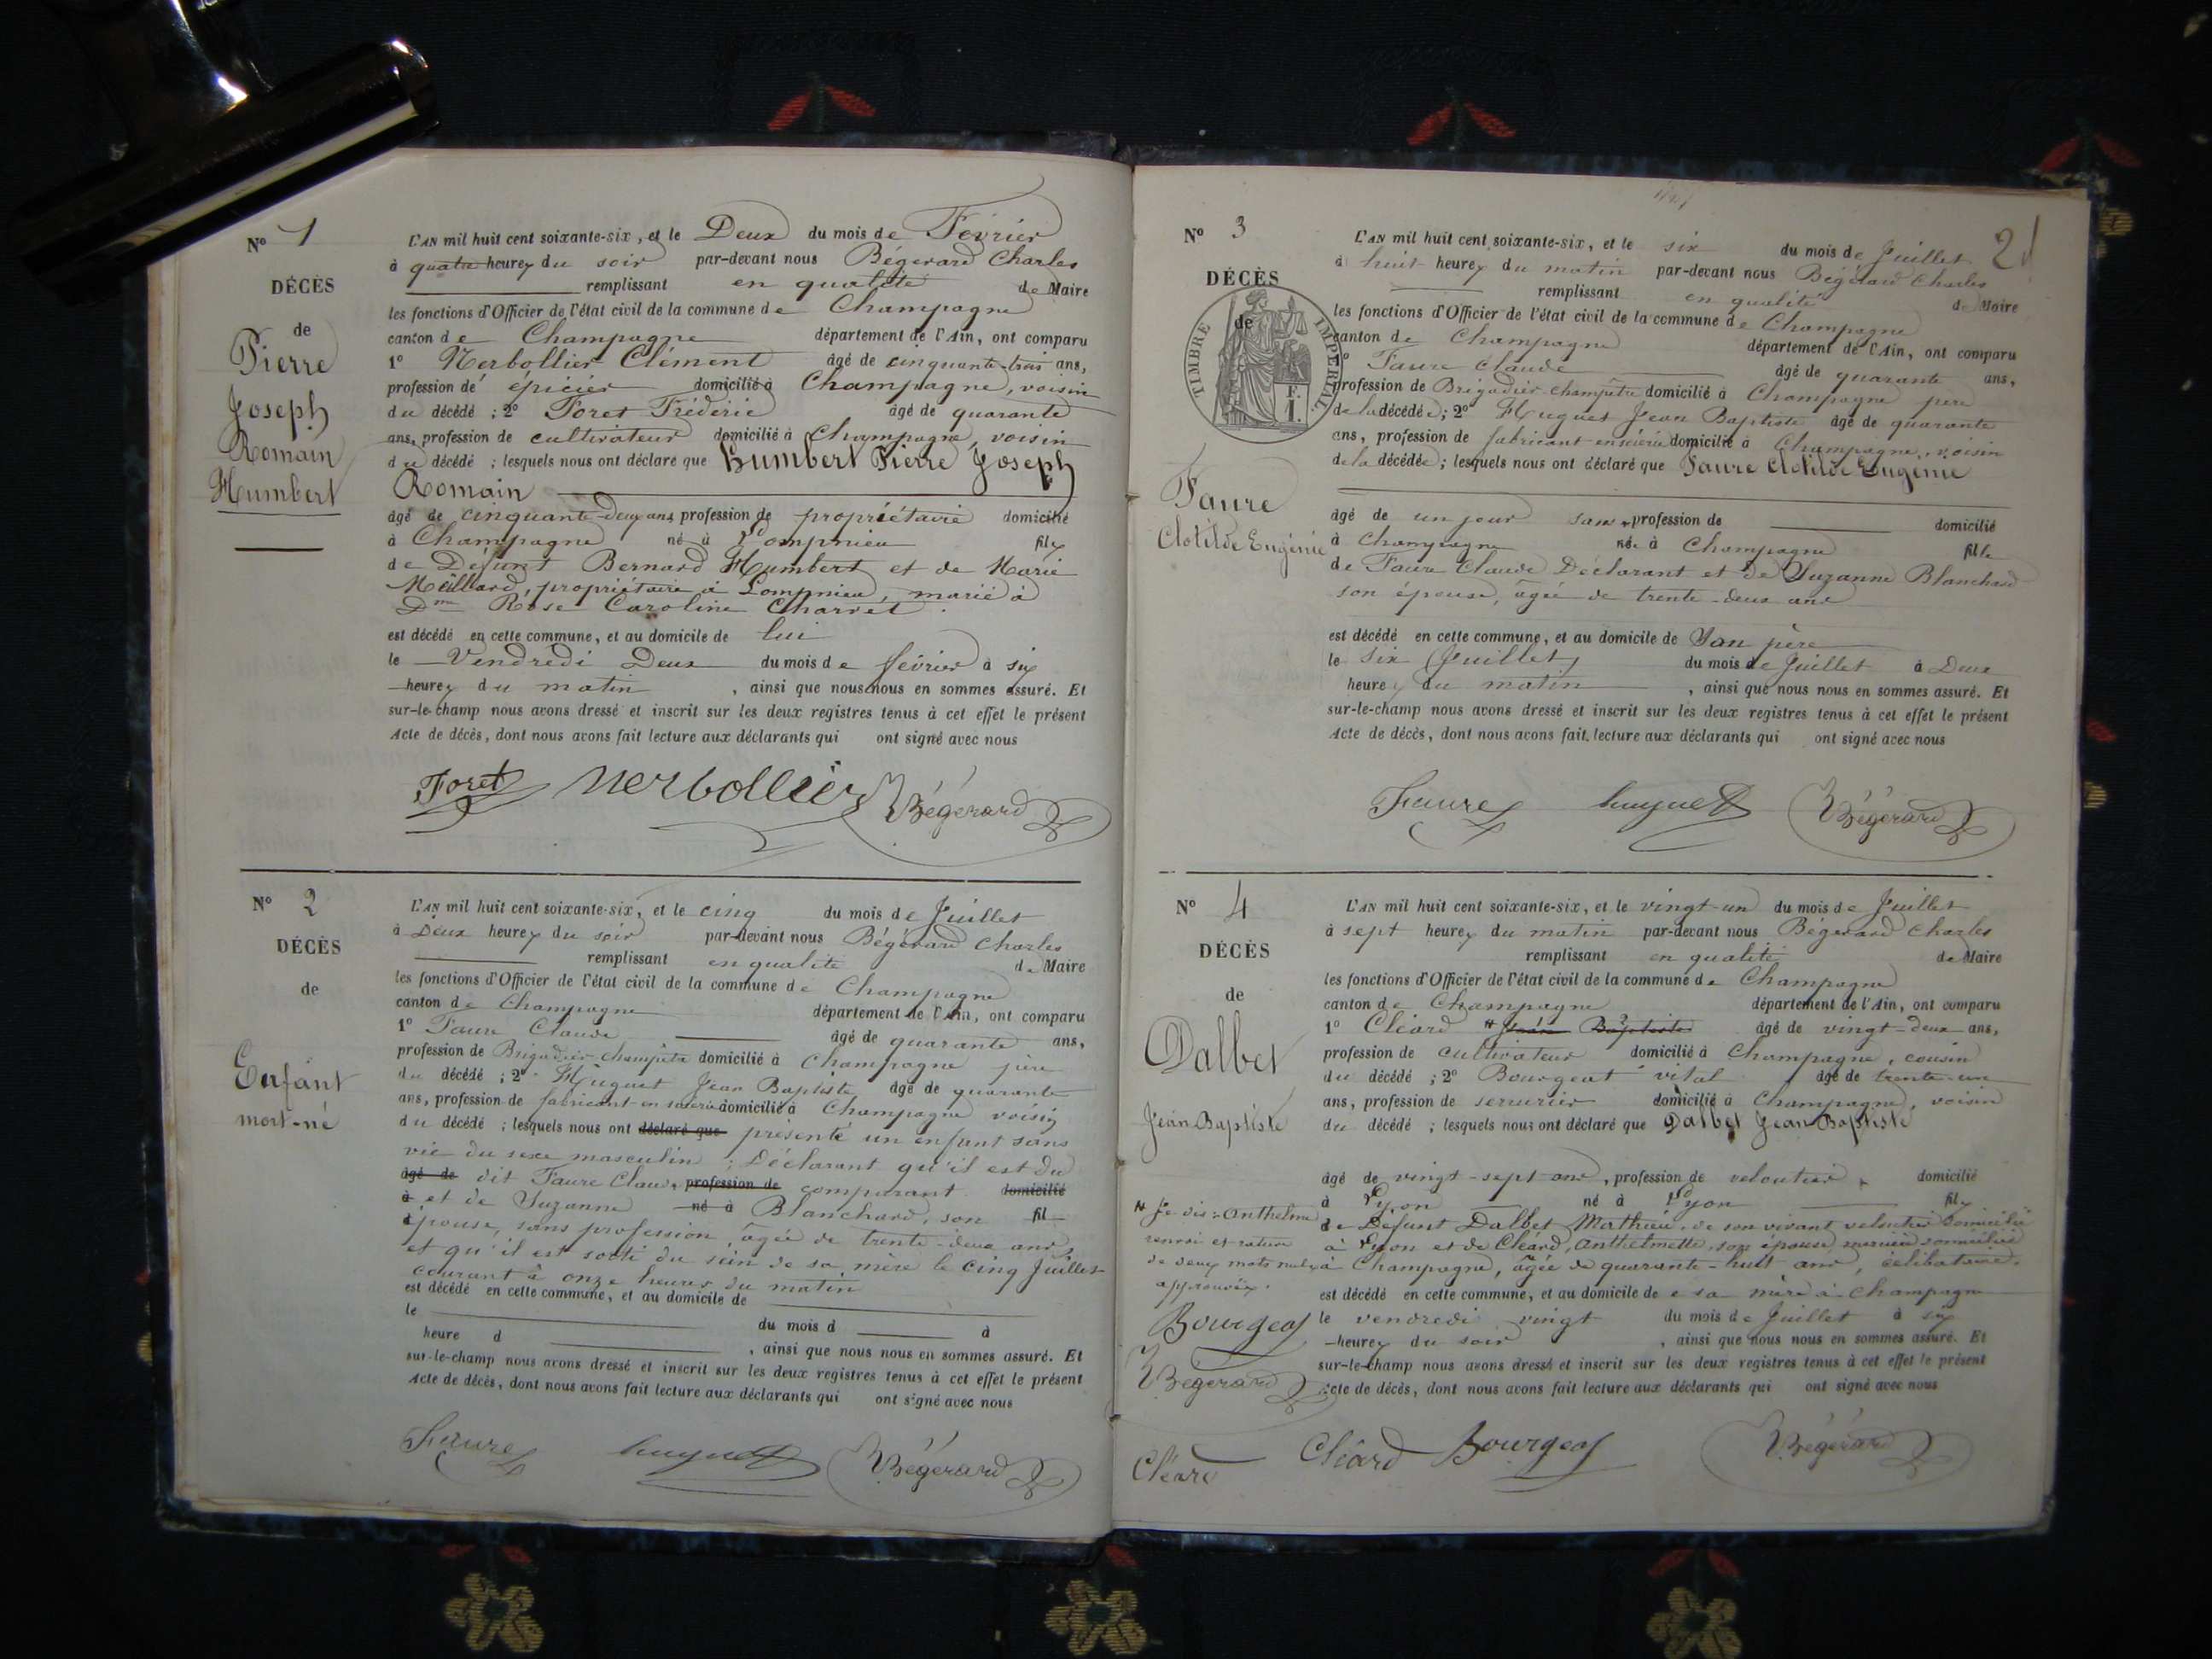 N° 1
DÉCÈS
de
Pierre
Joseph
Romain
Humbert
L'AN mil huit cent soixante-six, et le Deux du mois de Février
à quatre heures du soir par-devant nous Bégerard Charles
remplissant en qualité de Maire
les fonctions d'Officier de l'état civil de la commune de Champagne
canton de Champagne département de l'Ain, ont comparu
1° Nerbollier Clément âgé de cinquante-trois ans,
profession de épicier domicilié à Champagne, voisin
du décédé ; 2° Foret Fréderic âgé de quarante
ans, profession de cultivateur domicilié à Champagne, voisin
du décédé ; lesquels nous ont déclaré que Humbert Pierre Joseph
Romain
âgé de cinquante-deux ans profession de propriétaire domicilié
à Champagne né à Lompnieu fils
de Défunt Bernard Humbert et de Marie
Maillard, propriétaire à Lompnieu, marié à
Dme Rose Caroline Charvet.
est décédé en cette commune, et au domicile de lui
le Vendredi Deux du mois de février à six
heures du matin , ainsi que nous nous en sommes assuré. Et
sur-le-champ nous avons dressé et inscrit sur les deux registres tenus à cet effet le présent
Acte de décès, dont nous avons fait lecture aux déclarants qui ont signé avec nous
Foret Nerbollier Bégerard
N° 2
DÉCÈS
de
Enfant
mort-né
L'AN mil huit cent soixante-six, et le cinq du mois de Juillet
à Deux heures du soir par-devant nous Bégerard Charles
remplissant en qualité de Maire
les fonctions d'Officier de l'état civil de la commune de Champagne
canton de Champagne département de l'Ain, ont comparu
1° Faure Claude âgé de quarante ans,
profession de Brigadier-champêtre domicilié à Champagne père
du décédé ; 2° Huguet Jean Baptiste âgé de quarante
ans, profession de fabricant en domicilié à Champagne voisin
du décédé ; lesquels nous ont déclaré que présenté un enfant sans
vie du sexe masculin ; Déclarant qu'il est du
âgé de dit Faure Claude profession de comparant domicilié
à et de Suzanne né à Blanchard, son fil
épouse, sans profession, âgée de trente-deux ans,
et qu'il est sorti du sein de sa mère le cinq Juillet
courant à onze heures du matin
est décédé en cette commune, et au domicile de
le du mois d à
heure d , ainsi que nous nous en sommes assuré. Et
sur-le-champ nous avons dressé et inscrit sur les deux registres tenus à cet effet le présent
Acte de décès, dont nous avons fait lecture aux déclarants qui ont signé avec nous
Faure huguet Bégerard
2
N° 3
DÉCÈS
de
TIMBRE IMPERIAL
F. I.
Faure
Clotilde Eugénie
L'AN mil huit cent soixante-six, et le six du mois de Juillet
à huit heures du matin par-devant nous Bégerard Charles
remplissant en qualité de Maire
les fonctions d'Officier de l'état civil de la commune de Champagne
canton de Champagne département de l'Ain, ont comparu
1° Faure Claude âgé de quarante ans,
profession de Brigadier champêtre domicilié à Champagne père
de la décédée ; 2° Huguet Jean Baptiste âgé de quarante
ans, profession de fabricant en domicilié à Champagne, voisin
de la décédée ; lesquels nous ont déclaré que Faure Clotilde Eugénie
âgé de un jour sans profession de domicilié
à Champagne née à Champagne fille
de Faure Claude Déclarant et de Suzanne Blanchard
son épouse, âgée de trente-deux ans
est décédé en cette commune, et au domicile de Son père
le six Juillet du mois de Juillet à Deux
heures du matin , ainsi que nous nous en sommes assuré. Et
sur-le-champ nous avons dressé et inscrit sur les deux registres tenus à cet effet le présent
Acte de décès, dont nous avons fait lecture aux déclarants qui ont signé avec nous
Faure huguet Bégerard
N° 4
DÉCÈS
de
Dalbet
Jean Baptiste
L'AN mil huit cent soixante-six, et le vingt-un du mois de Juillet
à sept heures du matin par-devant nous Bégerard Charles
remplissant en qualité de Maire
les fonctions d'Officier de l'état civil de la commune de Champagne
canton de Champagne département de l'Ain, ont comparu
1° Cléard # Jean Baptiste âgé de vingt-deux ans,
profession de cultivateur domicilié à Champagne, cousin
du décédé ; 2° Bourgeat vital âgé de trente-un
ans, profession de serrurier domicilié à Champagne, voisin
du décédé ; lesquels nous ont déclaré que Dalbet Jean Baptiste
âgé de vingt-sept ans, profession de veloutier domicilié
à Lyon né à Lyon fils
de Défunt Dalbet Mathieu, de son vivant veloutier domicilié
à Lyon et de Cléard, Anthelmette, son épouse domiciliée
à Champagne, âgée de quarante-huit ans, célibataire.
est décédé en cette commune, et au domicile de sa mère à Champagne
le vendredi vingt du mois de Juillet à six
heures du soir , ainsi que nous nous en sommes assuré. Et
sur-le-champ nous avons dressé et inscrit sur les deux registres tenus à cet effet le présent
Acte de décès, dont nous avons fait lecture aux déclarants qui ont signé avec nous
# Je dis : Anthelme
renvoi et rature
de deux mots nuls
approuvés.
Bourgeat
Bégerard
Cléard
Cléard Bourgeat Bégerard